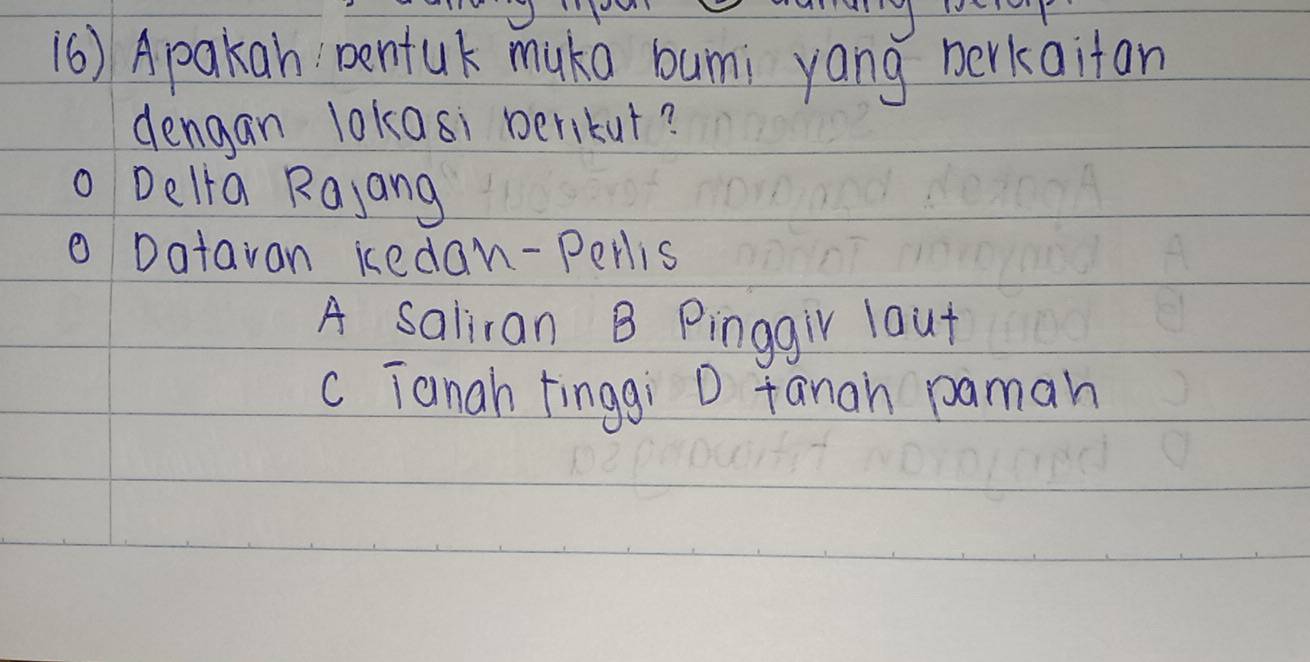 16) Apakah bentuk muka bumi yang berkaitan
dengan lokasi berikut?
o Delta Rajang
o Dataran Kedah-Perlis
A Saliran B Pinggir laut
C Tanah tinggi D tanah pamah